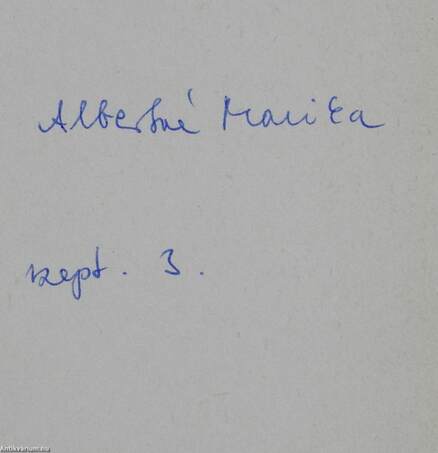 Albertné Marika
szept. 3.
Antikvarium.hu